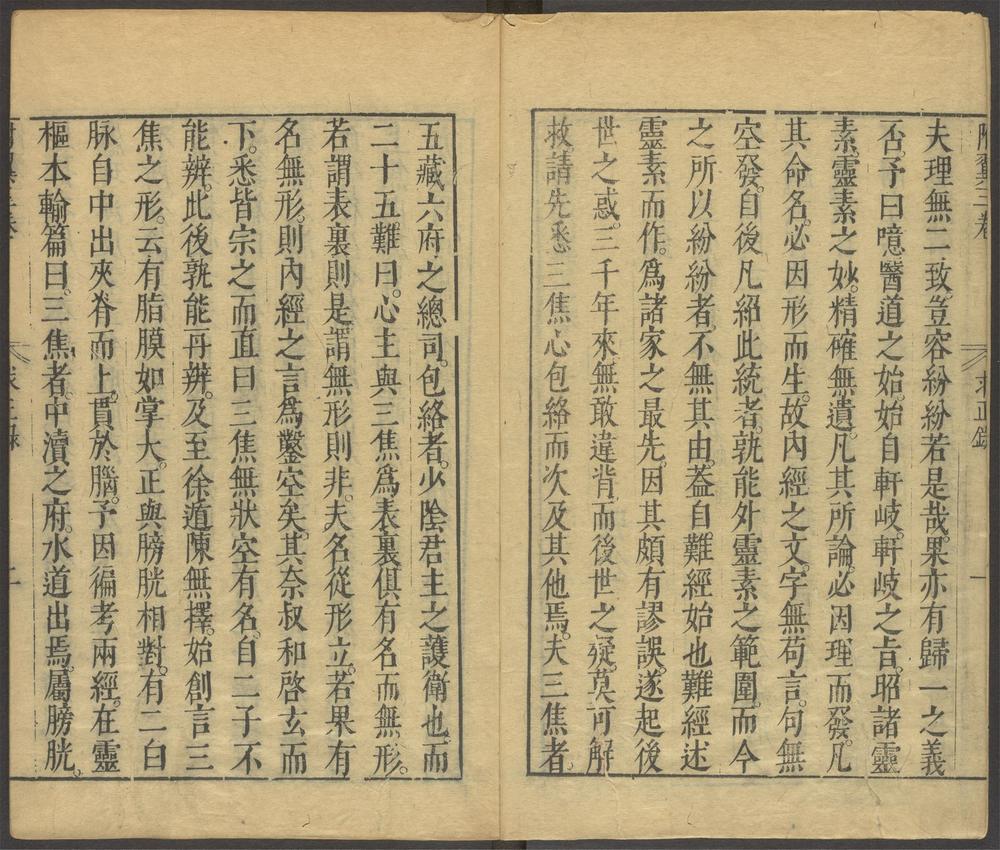 附翼三卷
求正錄
一
夫理無二致。豈容紛紛若是哉。果亦有歸一之義
否。予曰。噫。醫道之始。始自軒岐。軒岐之旨。昭諸靈
素。靈素之妙。精確無遺。凡其所論。必因理而發。凡
其命名。必因形而生。故內經之文。字無苟言。句無
空發。自後凡紹此統者。孰能外靈素之範圍。而今
之所以紛紛者。不無其由。葢自難經始也。難經述
靈素而作。爲諸家之最先。因其頗有謬誤。遂起後
世之惑。三千年來無敢違背。而後世之疑莫可解
救。請先悉三焦心包絡而次及其他焉。夫三焦者
五藏六府之總司。包絡者。少陰君主之護衛也。而
二十五難曰。心主與三焦爲表裏。俱有名而無形。
若謂表裏則是。謂無形則非。夫名從形立。若果有
名無形。則內經之言爲鑿空矣。其奈叔和啓玄而
下。悉皆宗之。而直曰三焦無狀空有名。自二子不
能辨。此後孰能再辨。及至徐遁陳無擇。始創言三
焦之形。云有脂膜如掌大。正與膀胱相對。有二白
脉自中出夾脊而上。貫於腦。予因徧考兩經。在靈
樞本輸篇曰。三焦者。中瀆之府。水道出焉。屬膀胱。
二